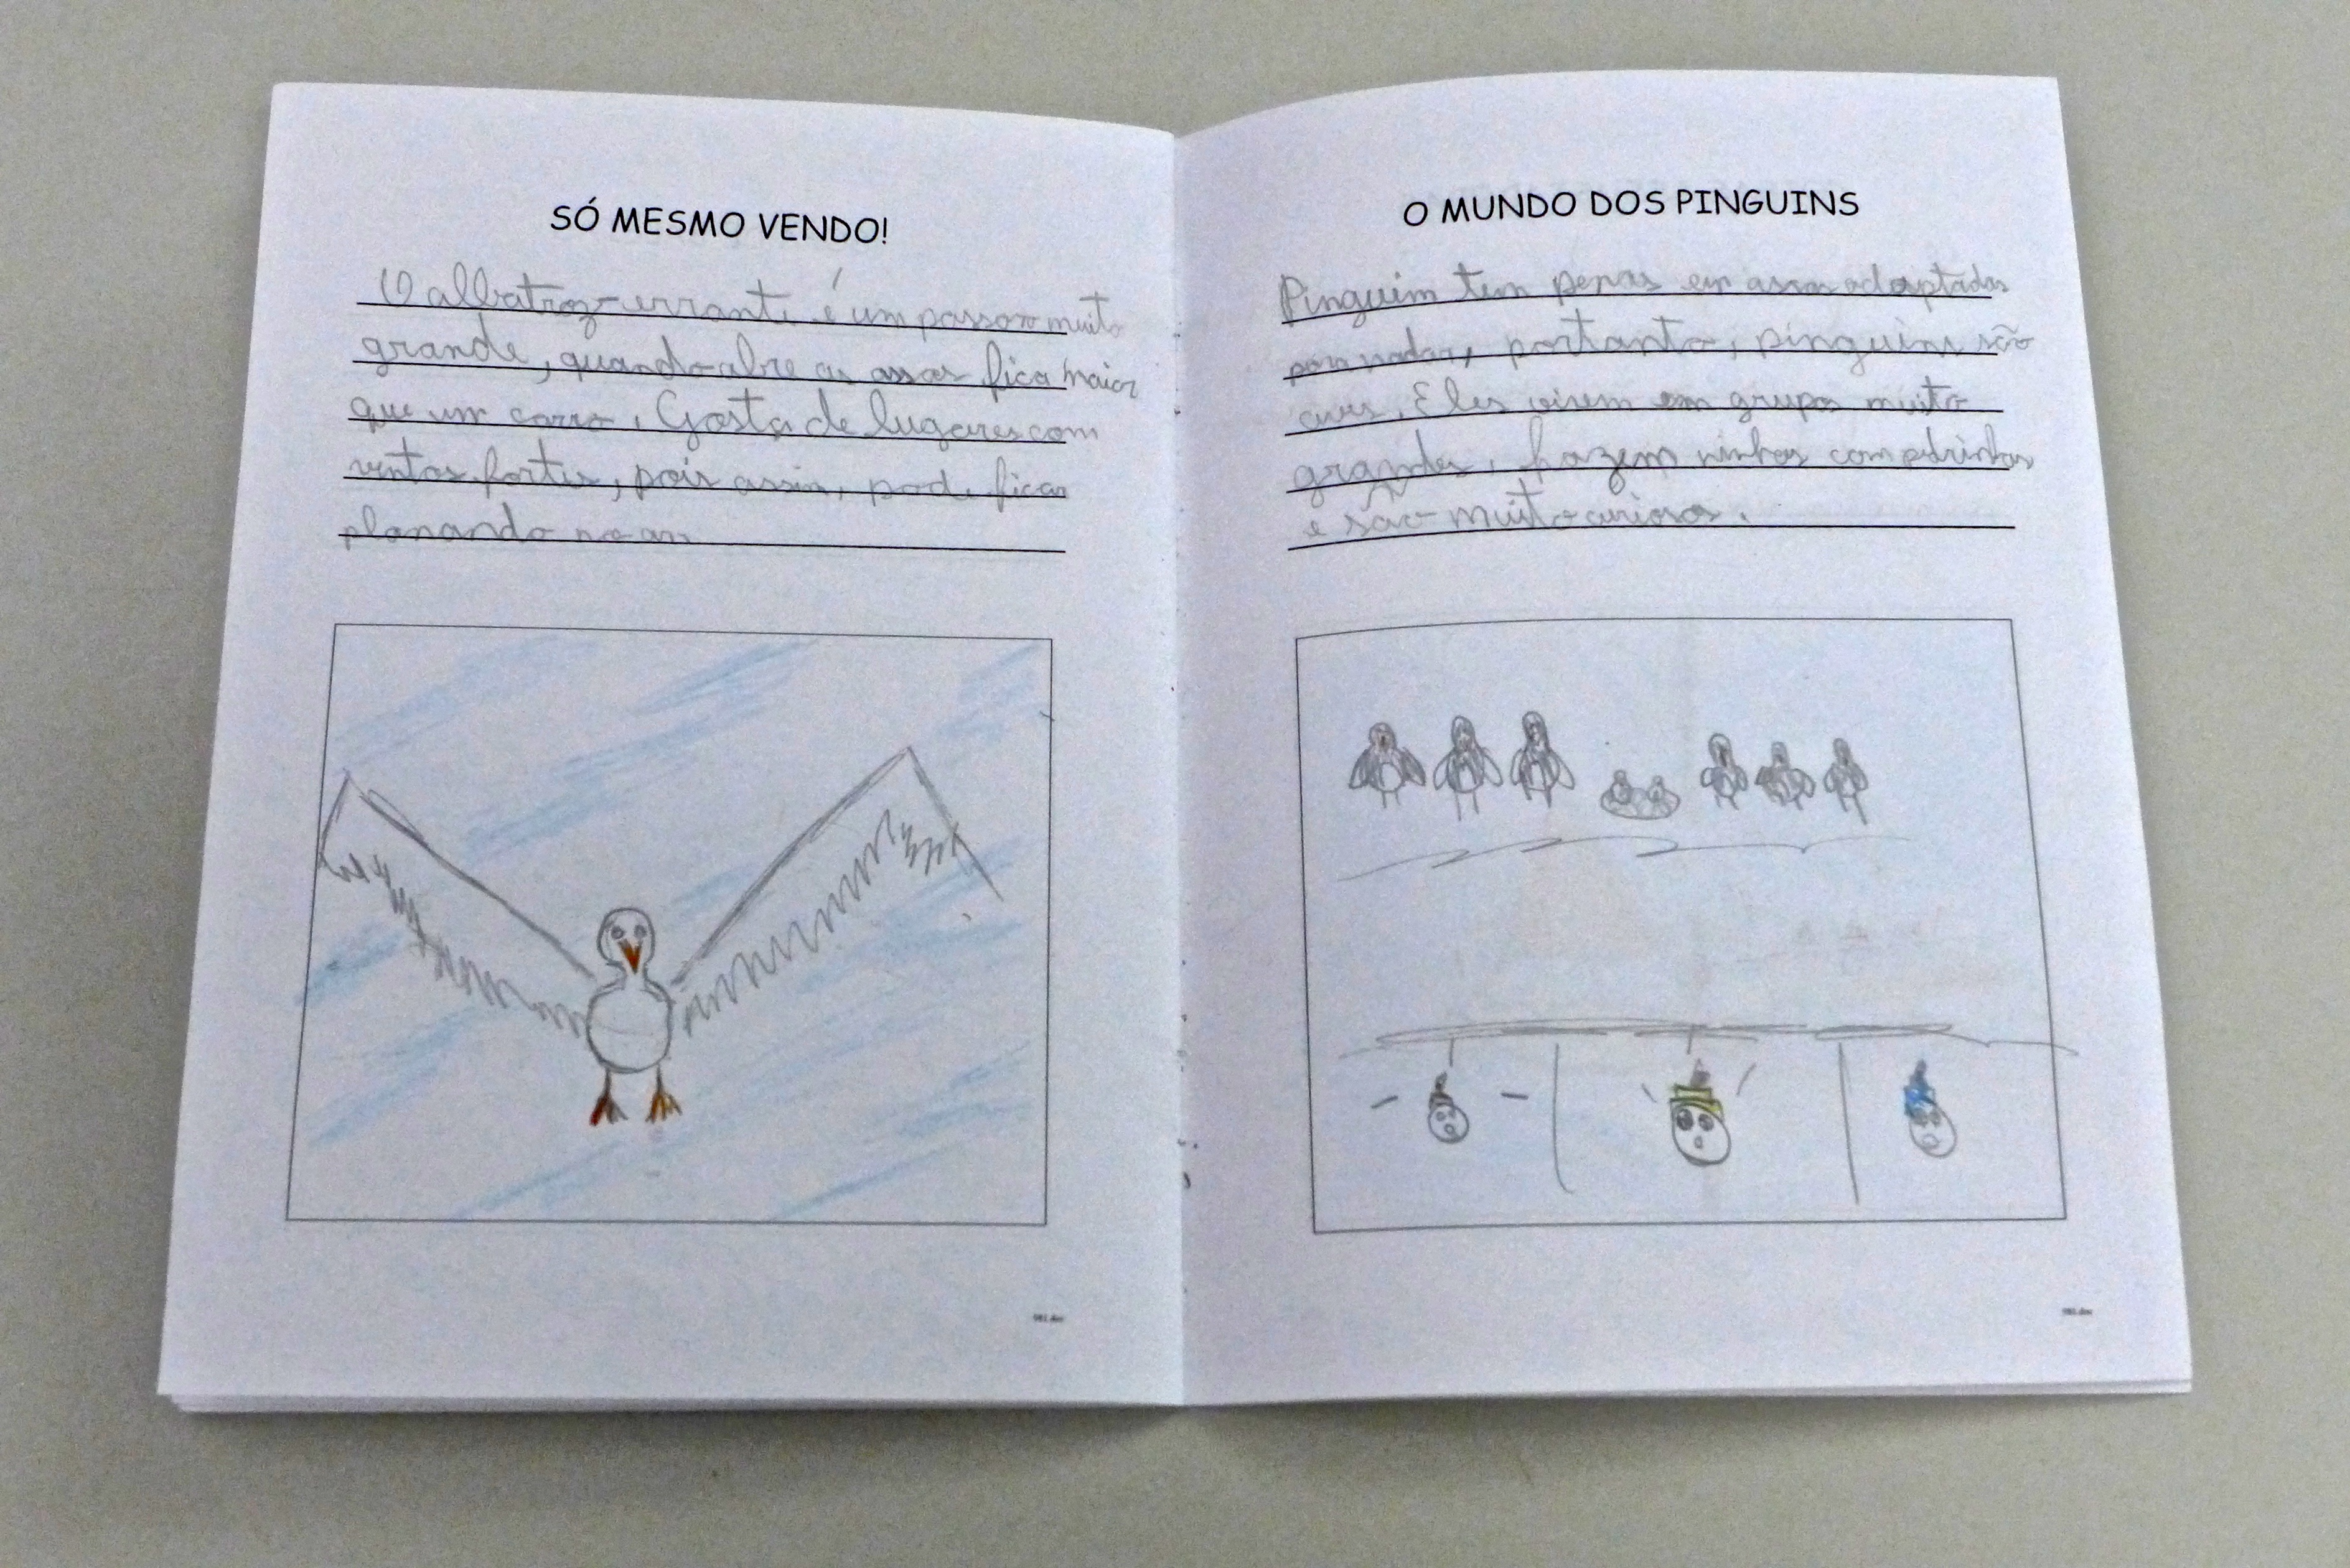 SÓ MESMO VENDO!
O albatroz-errante é um passaro muito
grande, quando abre as assas fica maior
que um carro. Gosta de lugares com
ventos fortes, pois assim, pode ficar
planando no ar.
O MUNDO DOS PINGUINS
Pinguim tem penas em assas adaptadas
para nadar, portanto, pinguins são
aves. Eles vivem em grupos muito
grandes, fazem ninhos com pedrinhas
e são muito curiosos.